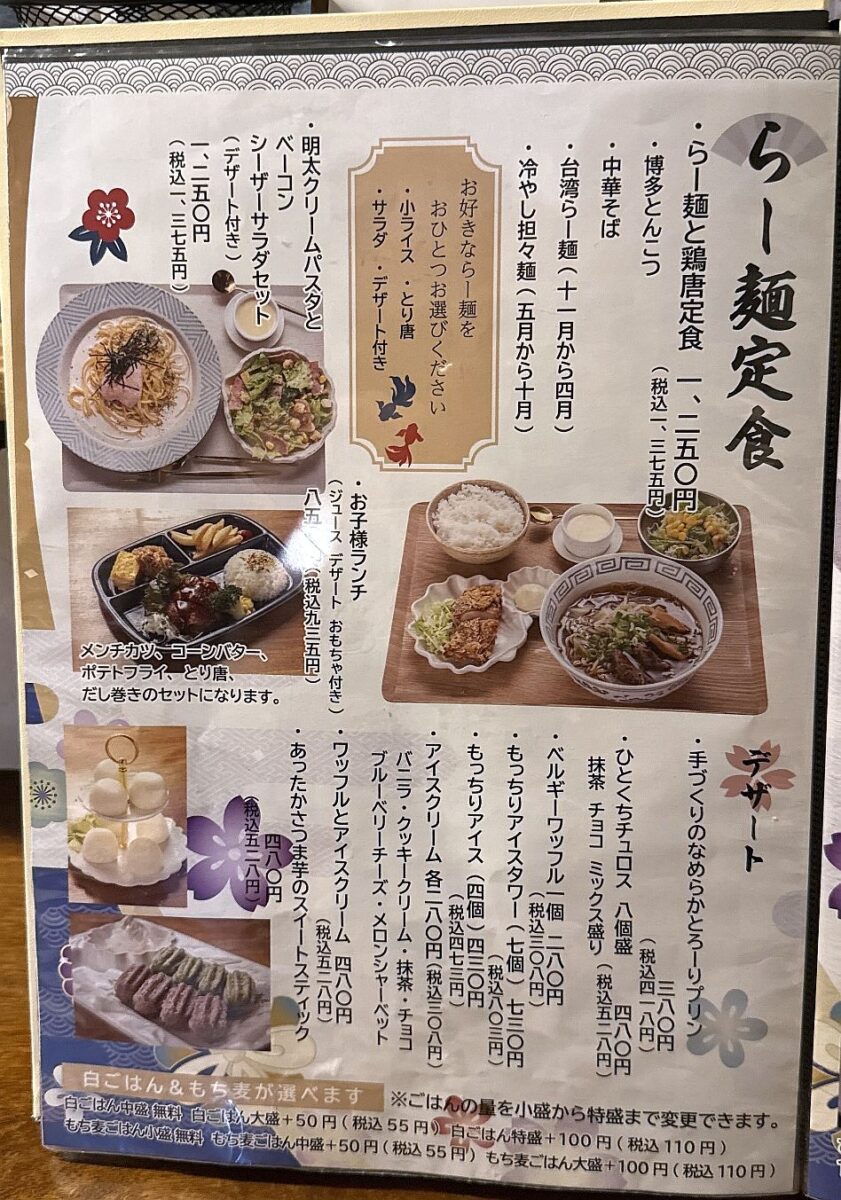 らー麺定食
・らー麺と鶏唐定食 一、二五〇円
(税込一、三七五円)
・博多とんこつ
・中華そば
・台湾らー麺(十一月から四月)
・冷やし担々麺(五月から十月)
お好きならー麺を
おひとつお選びください
・小ライス ・とり唐
・サラダ ・デザート付き
・明太クリームパスタと
ベーコン
シーザーサラダセット
(デザート付き)
一、二五〇円
(税込一、三七五円)
・お子様ランチ
(ジュース デザート おもちゃ付き)
八五 円(税込九三五円)
メンチカツ、コーンバター、
ポテトフライ、とり唐、
だし巻きのセットになります。
デザート
・手づくりのなめらかとろーりプリン
三八〇円
(税込四一八円)
・ひとくちチュロス 八個盛 四八〇円
抹茶 チョコ ミックス盛り (税込五二八円)
・ベルギーワッフル一個 二八〇円
(税込三〇八円)
・もっちりアイスタワー(七個) 七三〇円
(税込八〇三円)
・もっちりアイス(四個)四三〇円
(税込四七三円)
・アイスクリーム 各二八〇円(税込三〇八円)
バニラ・クッキークリーム・抹茶・チョコ
ブルーベリーチーズ・メロンシャーベット
・ワッフルとアイスクリーム 四八〇円
(税込五二八円)
・あったかさつま芋のスイートスティック
四八〇円
(税込五二八円)
白ごはん＆もち麦が選べます
※ごはんの量を小盛から特盛まで変更できます。
白ごはん中盛 無料 白ごはん大盛＋50円(税込55円) 白ごはん特盛＋100円(税込110円)
もち麦ごはん小盛 無料 もち麦ごはん中盛＋50円(税込55円) もち麦ごはん大盛＋100円(税込110円)